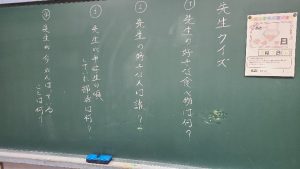 先生クイズ
① 先生の好きな食べ物は何？
② 先生の好きな人は誰？
③ 先生が中学生の頃
していた部活は何？
④ 先生が今がんばってる
ことは何？